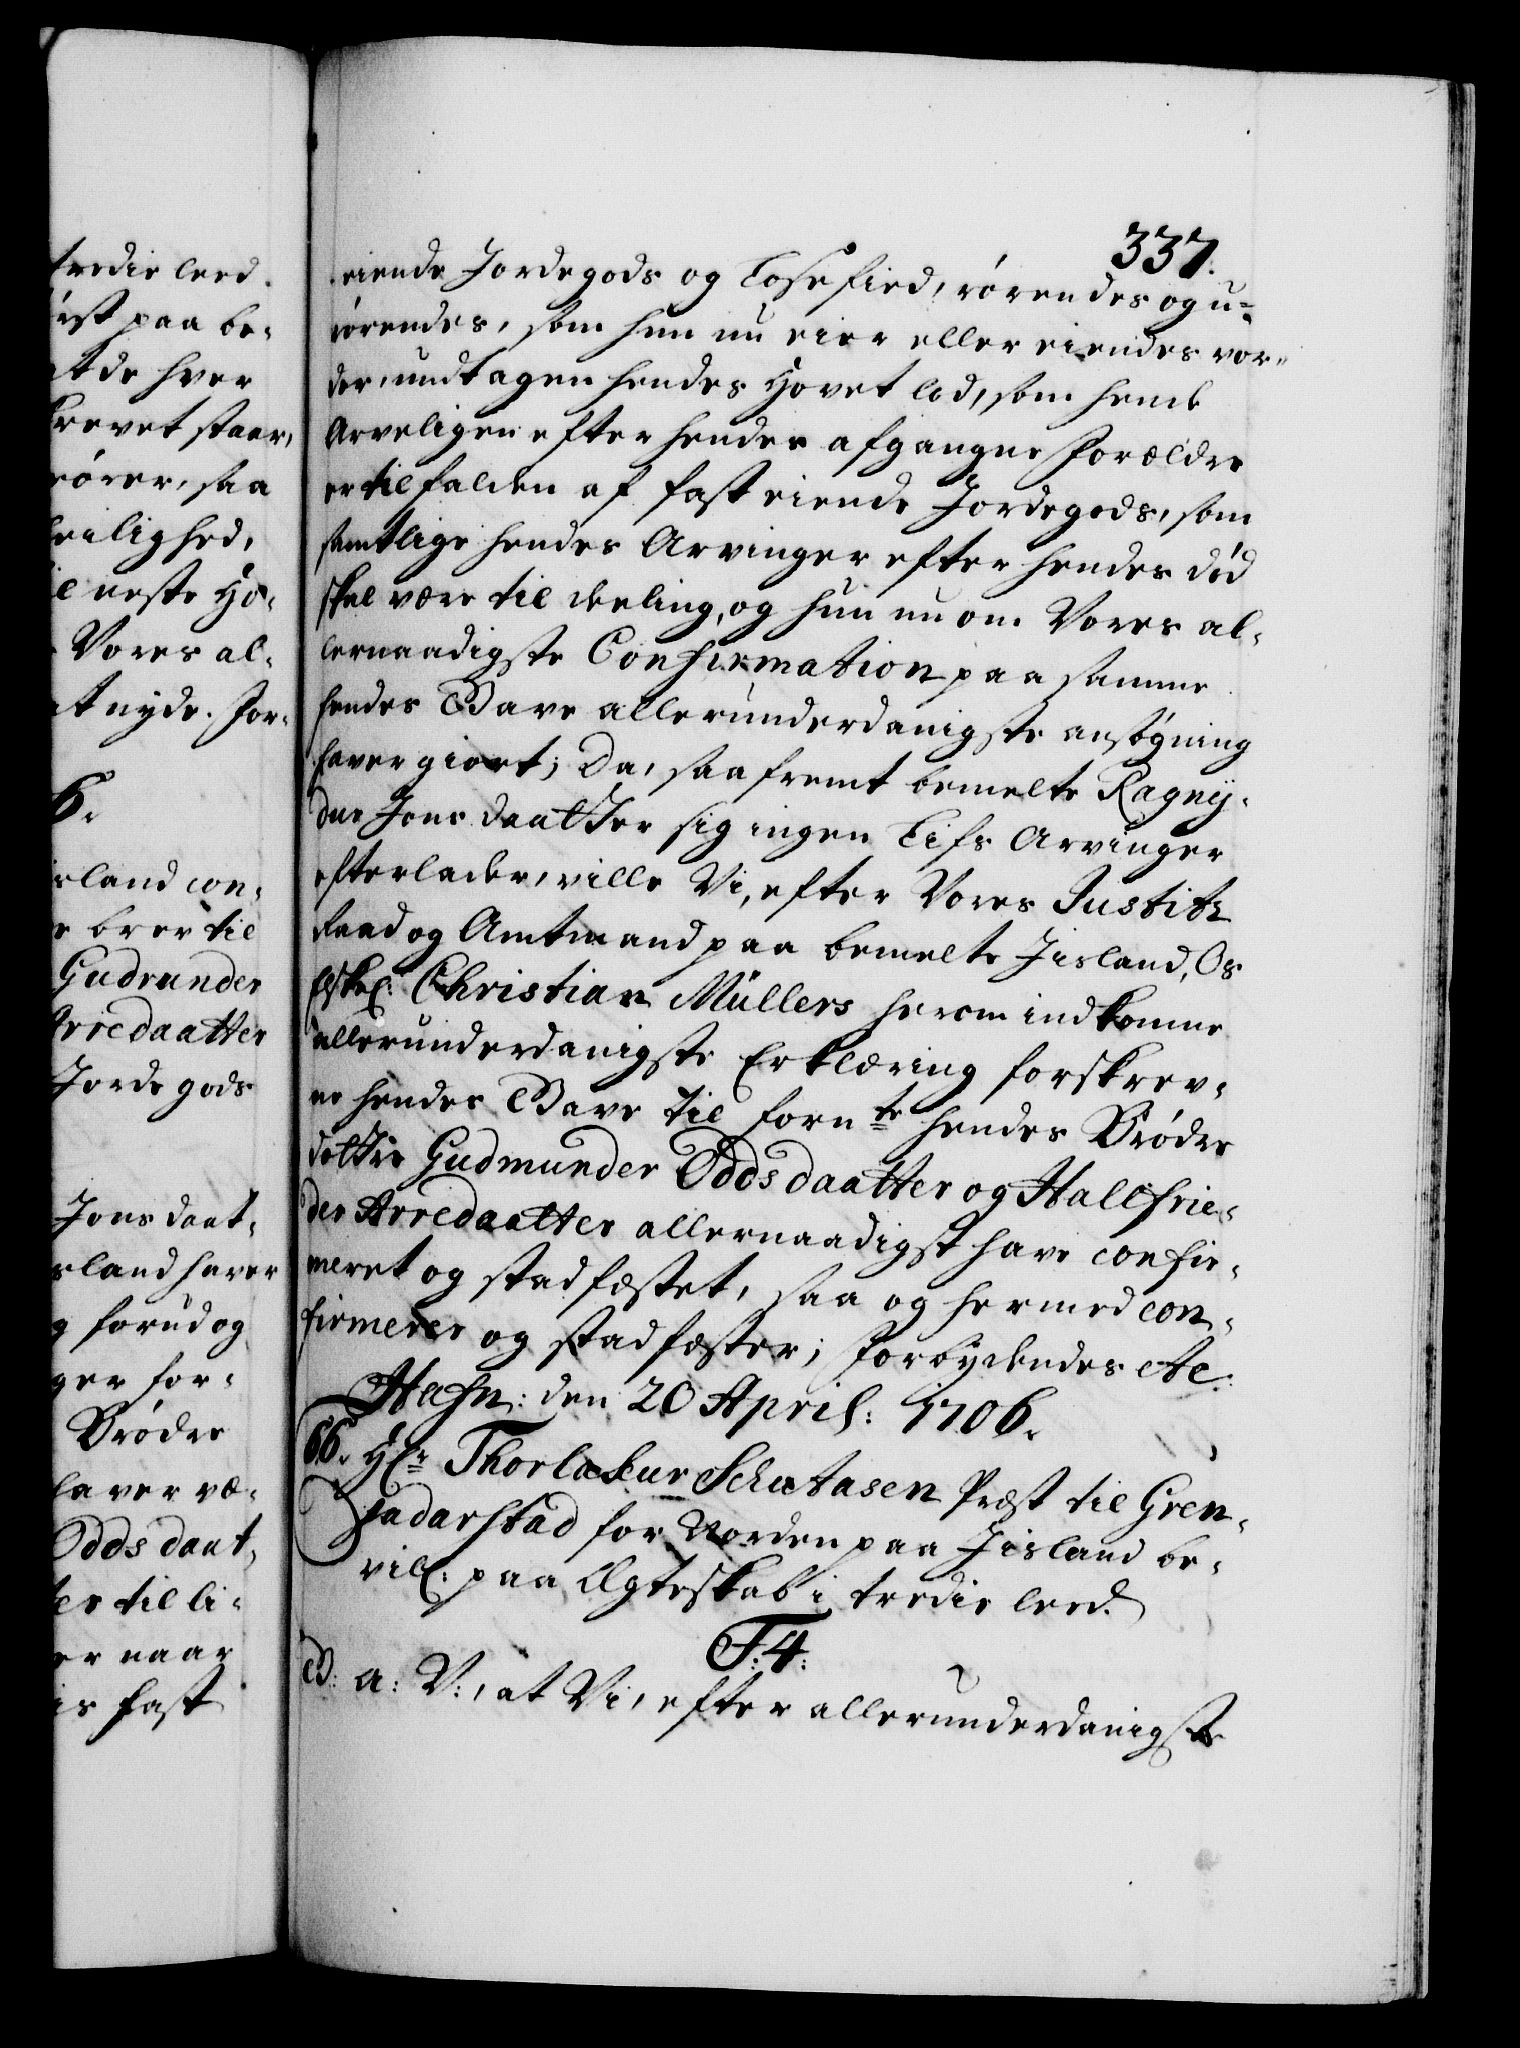 tredie leed.
rst paa be-
at de hver
krevet staar,
rører, saa
leilighed,
il neste Hø-
Vores al-
at nyde. For-
6.
island con-
e brev til
Gudrunder
Arredaatter
Jorde gods
Jons daat-
island haver
g forud og
ger for-
Brødre
haver væ-
Odds daat-
ter til li-
er naar
is fast
337.
eiende Jordegods og Løsefied, rørendes og u-
rørendes, som hun nu eier eller eiendes vor-
der, undtagen hendes Hovet lod, som hende
Arveligen efter hendes afgangne Forældre
er tilfalden af fast eiende Jordegods, som
samtlige hendes Arvinger efter hendes død
skal være til deeling, og hun nu om Vores al-
lernaadigste Confirmation paa samme
hendes Gave allerunderdanigste ansøgning
haver giort; Da, saafremt bemelte Ragnij-
dur Jons daatter sig ingen Lifs Arvinger
efterlader, ville Vi, efter Vores Justitz
Raad og Amtmand paa bemelte Jisland, Os
elskel: Christian Müllers herom indkomne
allerunderdanigste Erklæring forskrev-
ne hendes Gave til fornte hendes Brødre
døttre Gudmunder Odds daatter og Hallfrie-
der Arredaatter allernaadigst have confir-
meret og stadfæstet, saa og hermed con-
firmerer og stadfæster; Forbydendes etc:
Hafn: den 20 April: 1706.
66. Hr Thorlakur Schutasen Præst til Gren-
jadarstad for Norden paa Jisland be-
vill: paa Ægteskab i tredie leed.
F: 4:
G: a: V:, at Vi, efter allerunderdanigste